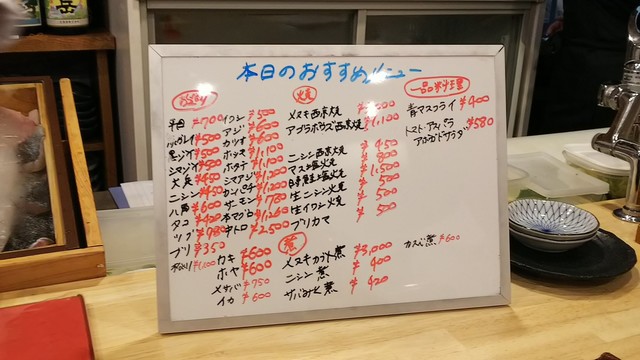 岳
本日のおすすめメニュー
おさしみ
平目 ¥700
¥500
黒ゾイ ¥500
シマゾイ ¥450
¥450
ニシン ¥450
八角 ¥600
タコ ¥420
ツブ ¥780
ブリ ¥350
¥1,100
イワシ ¥500
アジ ¥600
カツオ ¥600
ホッキ ¥1,100
ホタテ ¥1,100
シマアジ ¥1,200
カンパチ ¥1,200
サーモン ¥780
本マグロ ¥1,260
中トロ ¥2,500
カキ ¥600
ホヤ ¥600
〆サバ ¥750
イカ ¥600
焼
メヌキ西京焼
アブラボウズ西京焼 ¥1,100
ニシン西京焼 ¥450
マス塩焼 ¥800
時鮭塩焼 ¥1,500
生ニシン焼 ¥500
生イワシ焼 ¥500
ブリカマ ¥500
煮
メヌキカブト煮 ¥3,000
ニシン煮 ¥400
サバみそ煮 ¥420
一品料理
青マスフライ ¥400
トマト・アスパラ
アボガドサラダ ¥580
カスベ煮 ¥600